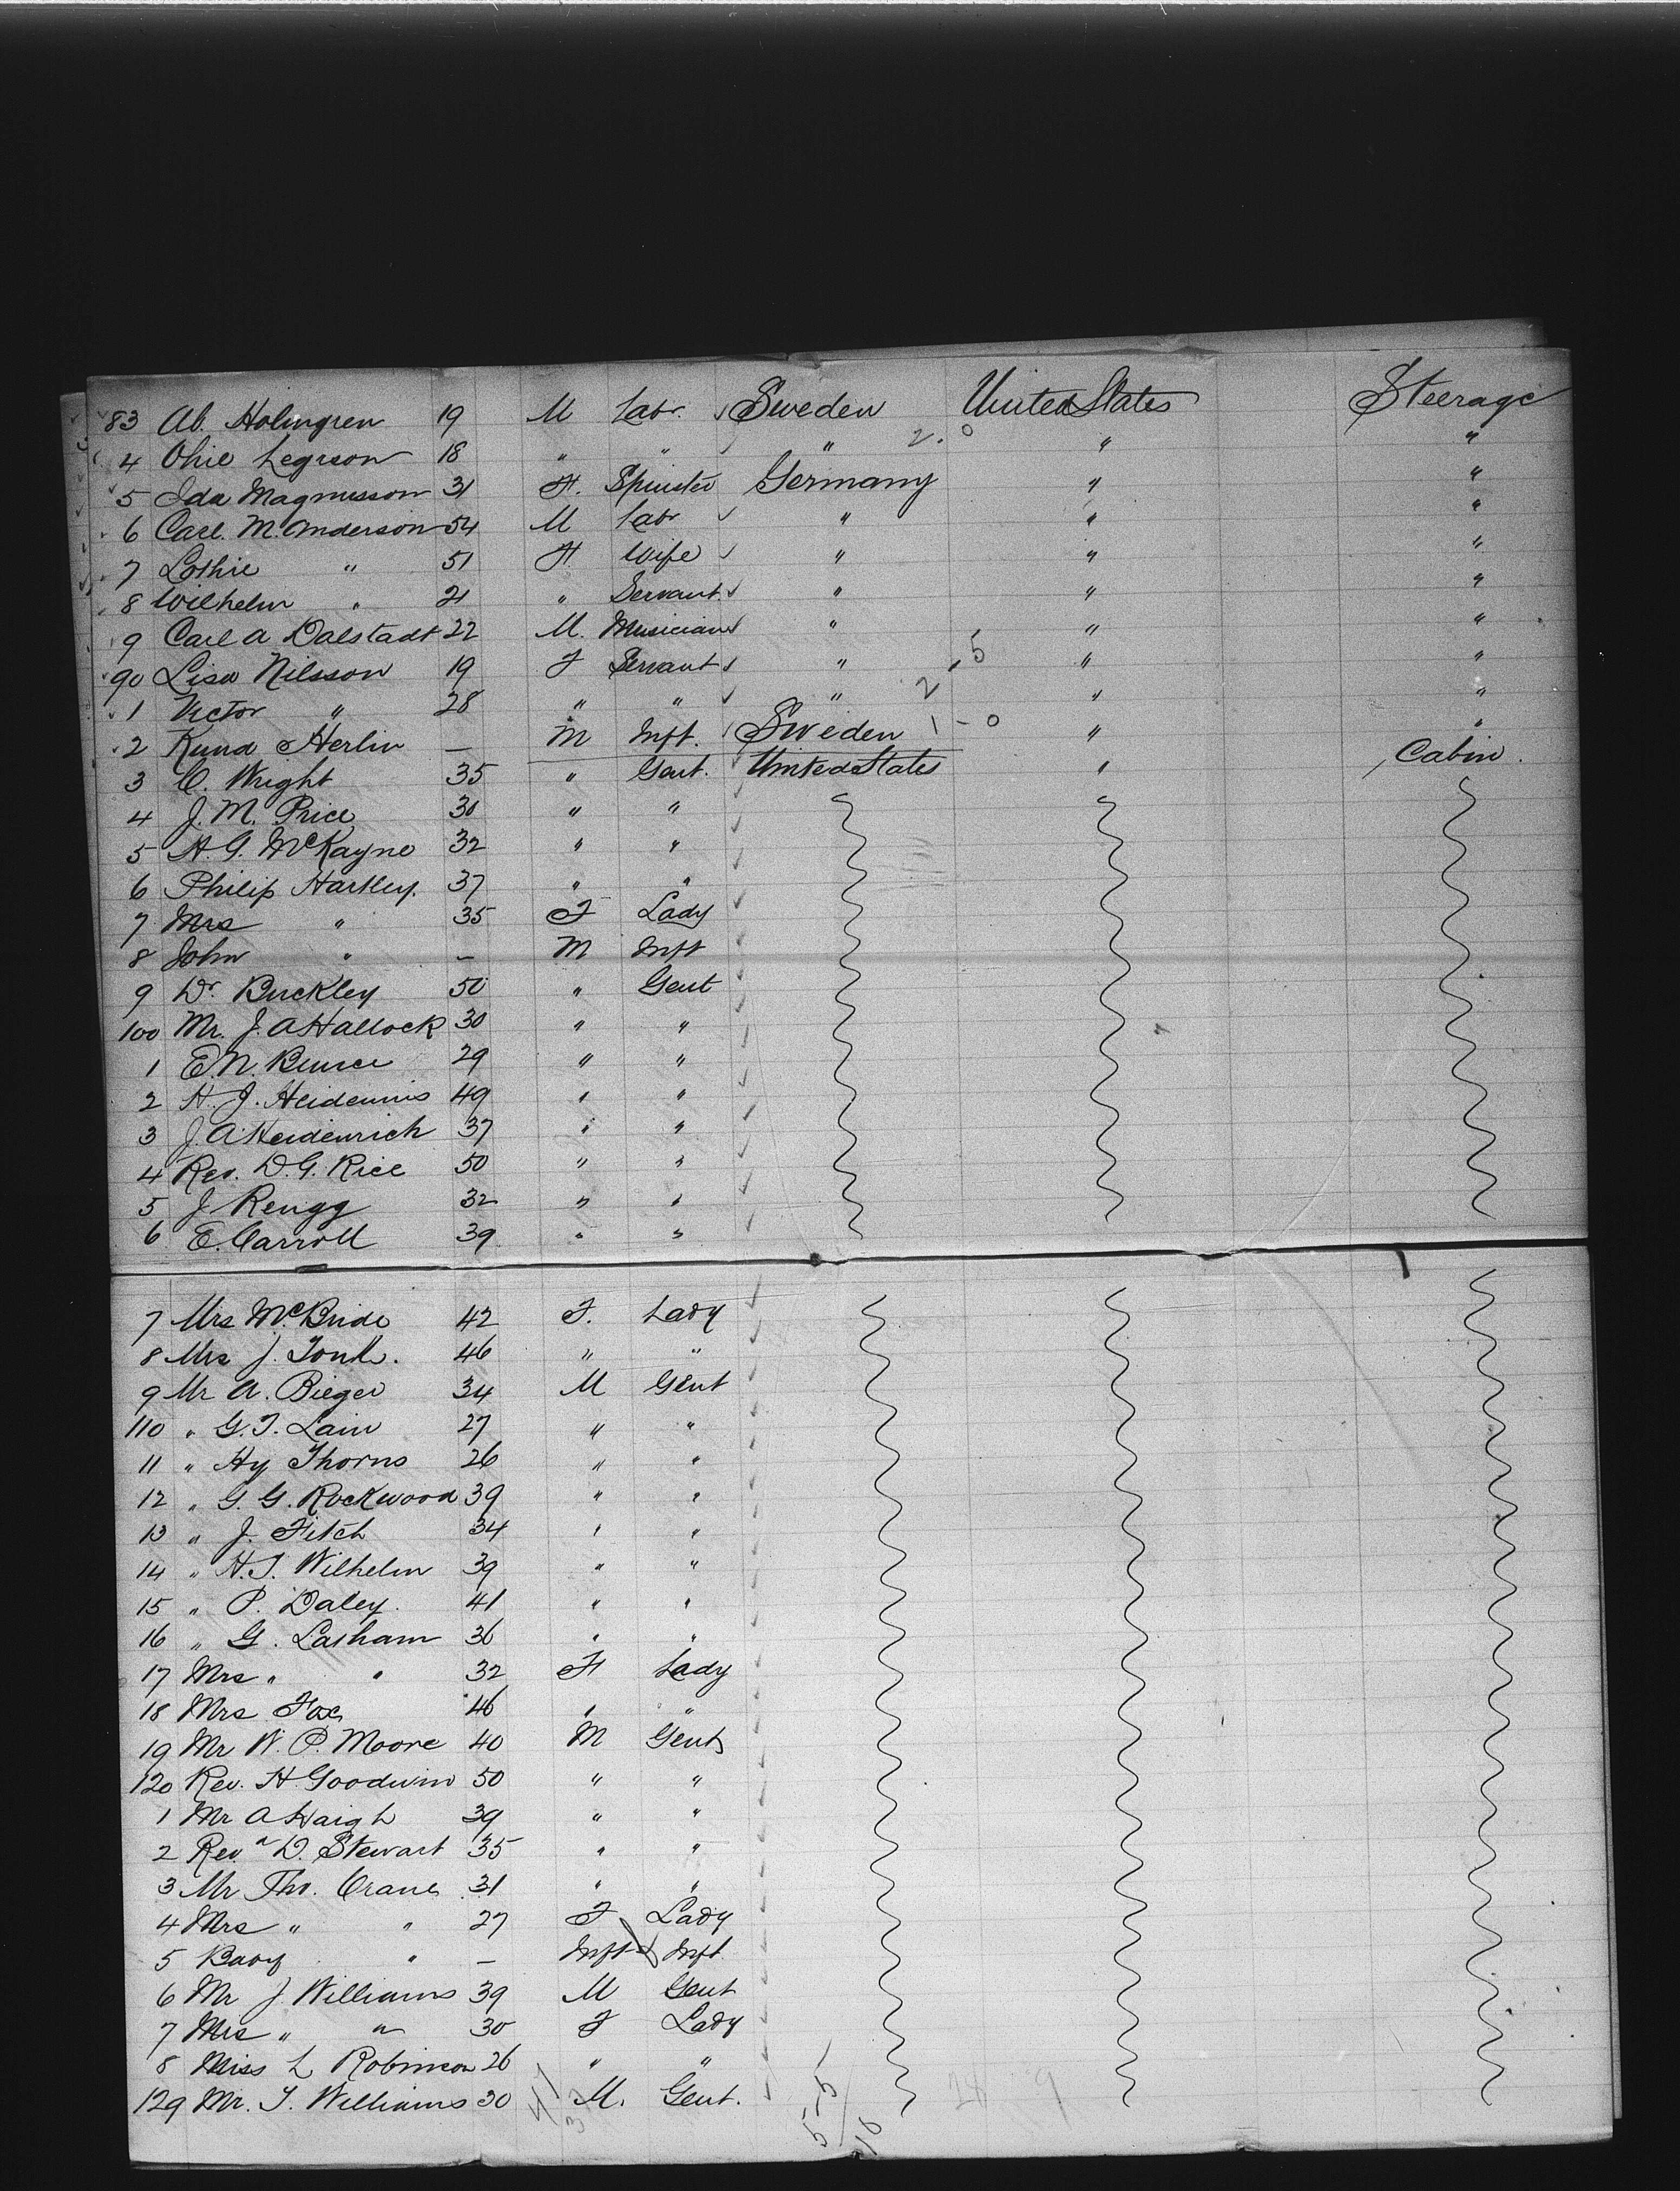 83 Ab. Holmgren 19 M Labr. Sweden United States Steerage
4 Ohie Legrson 18 " " " 2.0 " "
5 Ida Magnusson 31 F. Spinster Germany " "
6 Carl. M. Anderson 54 M Labr " " "
7 Lothie " 51 F Wife " " "
8 Wilhelm " 21 " Servant " " "
9 Carl A Dalstadt 22 M. Musician " " "
90 Lisa Nilsson 19 F Servant " 5 " "
1 Victor " 28 " " " 2 " "
2 Kund Herlin — M Inft. Sweden 1-0 " "
3 C. Wright 35 " Gent. United States " Cabin.
4 J. M. Price 30 " "
5 H. G. McKayne 32 " "
6 Philip Hartley. 37 " "
7 Mrs " 35 F Lady
8 John " — M Inft
9 Dr Buckley 50 " Gent
100 Mr. J. A Hallock 30 " "
1 E. N. 29 " "
2 H. J. 49 " "
3 J. A. Heidenrich 37 " "
4 Rev. D. G. Rice 50 " "
5 J Rengg 32 " "
6 E. Carroll 39 " "
7 Mrs McBride 42 F. Lady
8 Mrs J. 46 " "
9 Mr A. Bieger 34 M Gent
110 " G. T. Lain 27 " "
11 " Hy Thorns 26 " "
12 " G. G. Rockwood 39 " "
13 " J. Fitch 34 " "
14 " H. T. Wilhelm 39 " "
15 " P. Daley. 41 " "
16 " G. Lasham 36 " "
17 Mrs " " 32 F Lady
18 Mrs Fox 46 " "
19 Mr W. P. Moore 40 M Gent
120 Rev. H. Goodwin 50 " "
1 Mr A Haigh 39 " "
2 Rev. D. Stewart 35 " "
3 Mr Tho. Crane 31 " "
4 Mrs " " 27 F Lady
5 Baby " — Inft Inft
6 Mr J. Williams 39 M Gent
7 Mrs " " 30 F Lady
8 Miss L Robinson 26 " "
129 Mr. T. Williams 30 M. Gent.